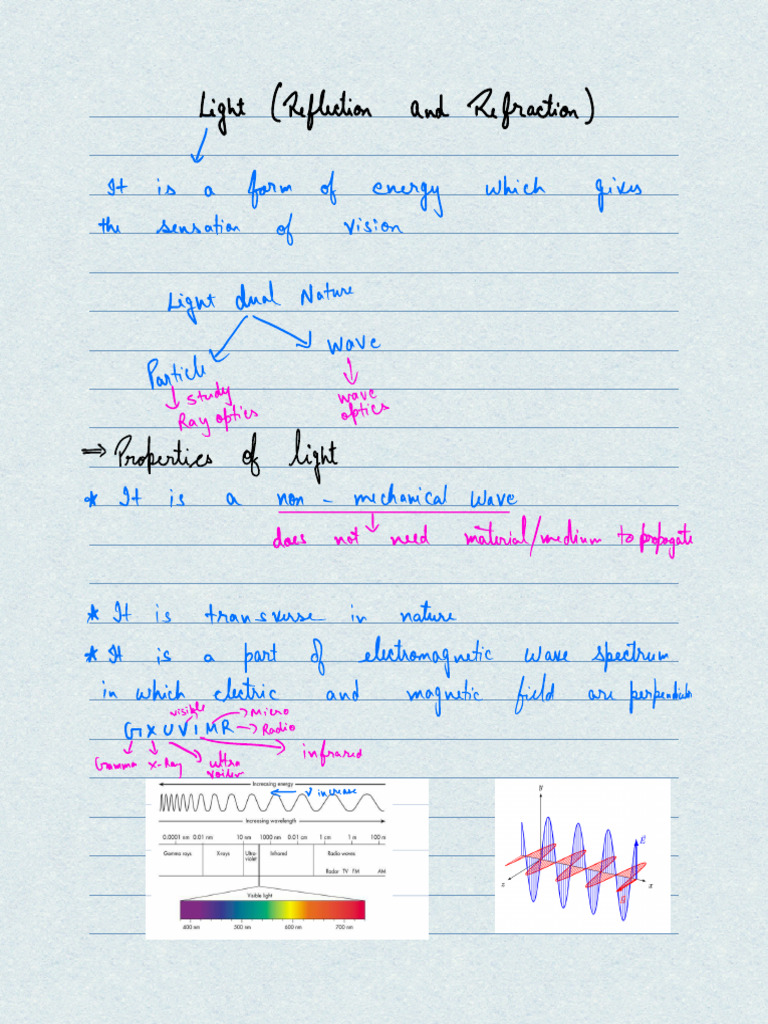 Light (Reflection and Refraction)
It is a form of energy which gives
the sensation of vision
Light dual Nature
Particle
wave
study
Ray optics
wave
optics
⇒ Properties of light
* It is a non - mechanical wave
does not need material/medium to propogate
* It is transverse in nature
* It is a part of electromagnetic wave spectrum
in which electric and magnetic field are perpendicular
visible
Micro
G X U V I M R
Radio
Gamma
X-Ray
ultra
infrared
Increasing energy
ν increase
Increasing wavelength
0.0001 nm 0.01 nm 10 nm 1000 nm 0.01 cm 1 cm 1 m 100 m
Gamma rays X-rays Ultra-violet Infrared Radio waves
Radar TV FM AM
Visible light
400 nm 500 nm 600 nm 700 nm
y
z
x